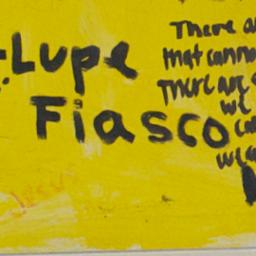 -Lupe
Fiasco
There a
that canno
There are
we
ca
we a
Jesus